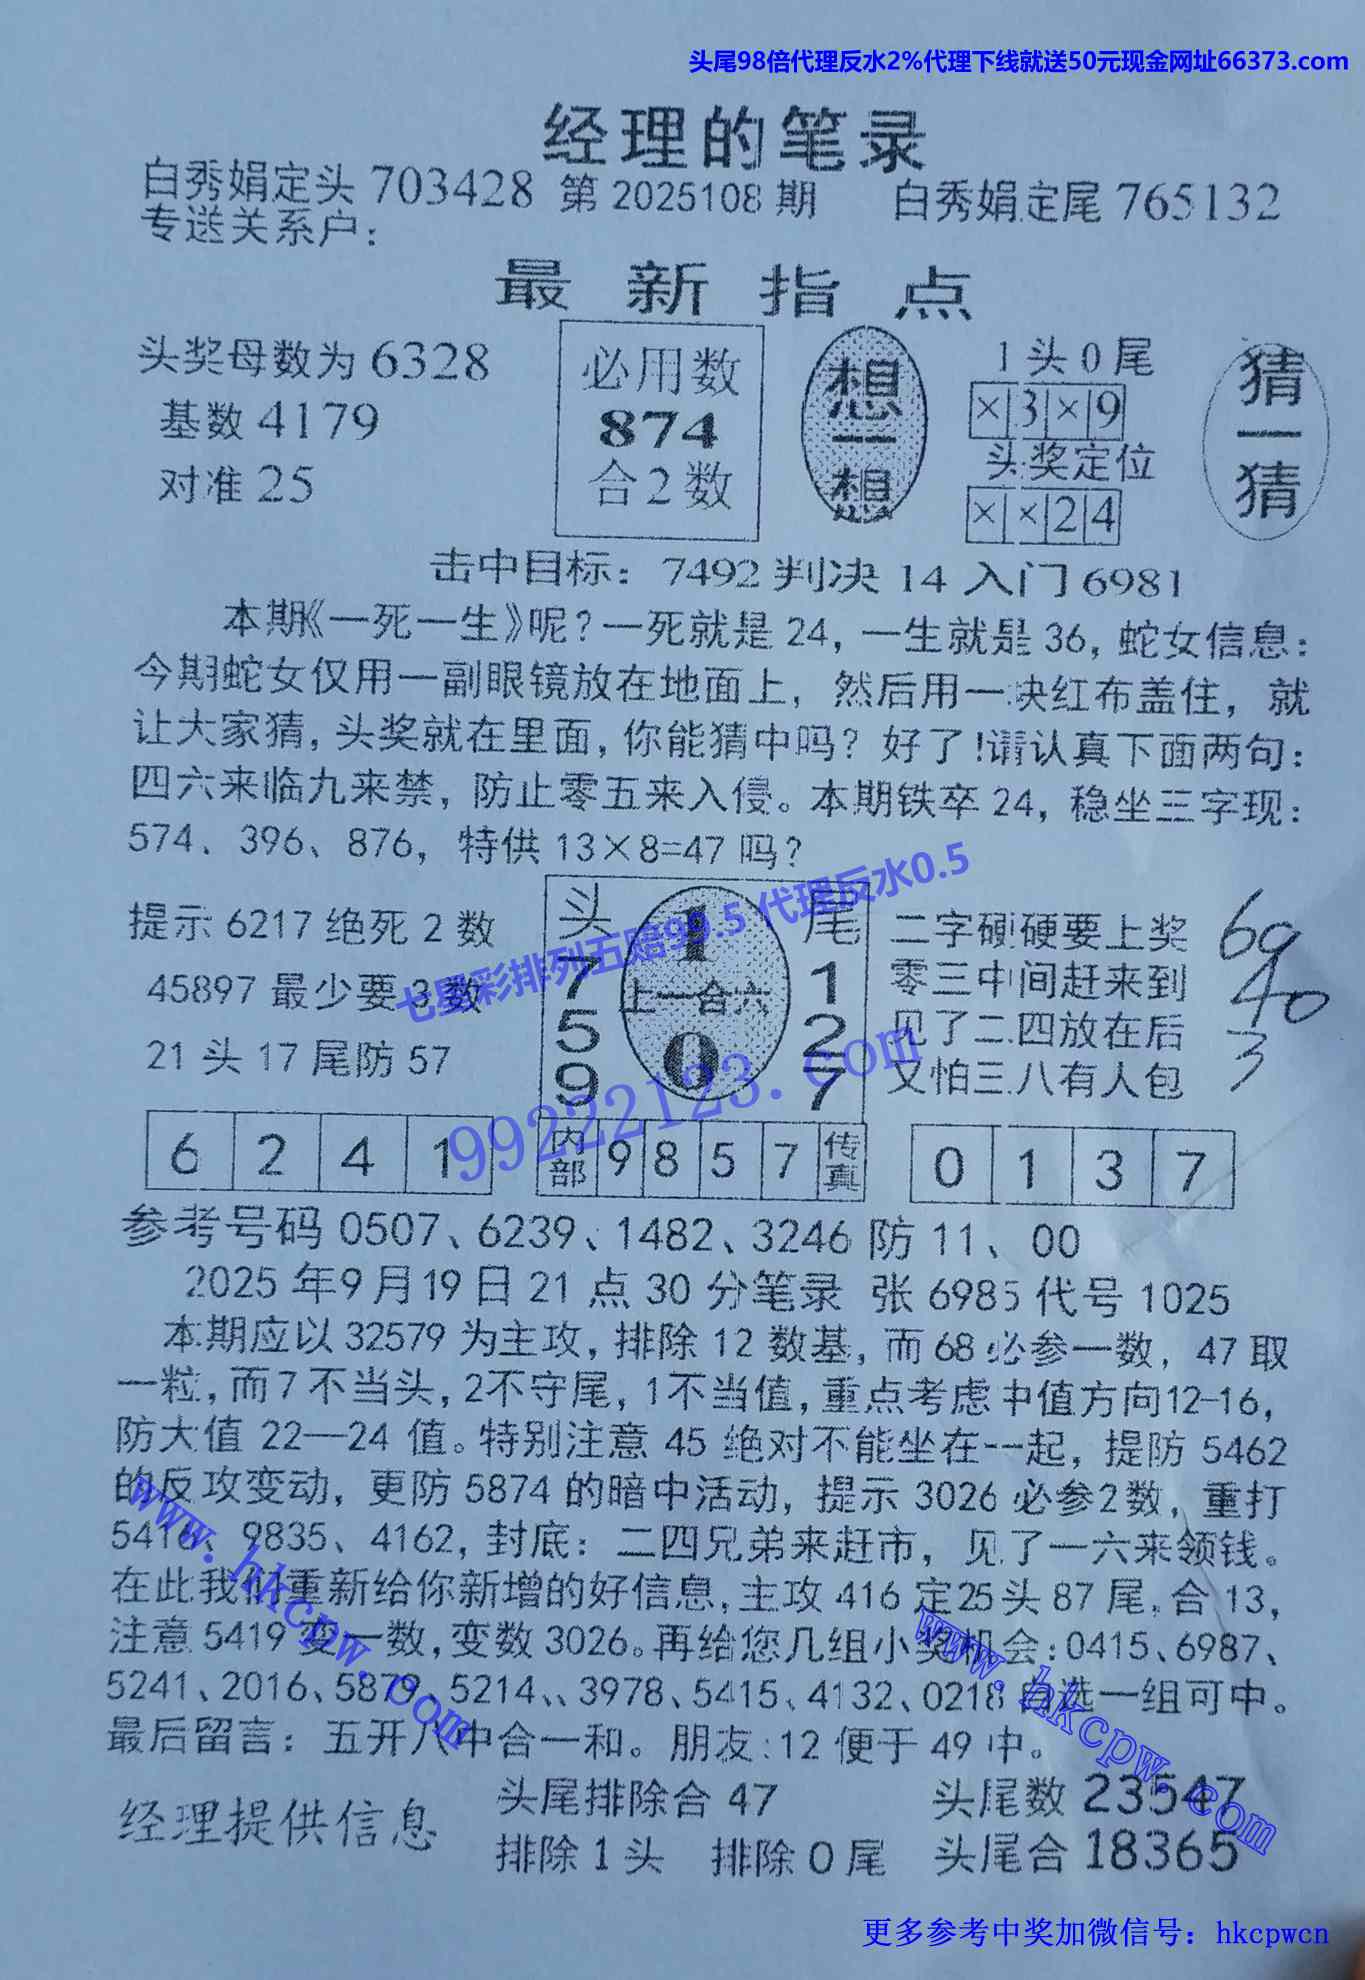 头尾98倍代理反水2%代理下线就送50元现金网址66373.com
经理的笔录
白秀娟定头 703428 第 2025108 期 白秀娟定尾 765132
专送关系户:
最新指点
头奖母数为 6328
基数 4179
对准 25
必用数
874
合2数
想一想
1头0尾
× 3 × 9
头奖定位
× × 2 4
猜一猜
击中目标: 7492 判决 14 入门 6981
本期《一死一生》呢?一死就是 24, 一生就是 36, 蛇女信息:
今期蛇女仅用一副眼镜放在地面上, 然后用一块红布盖住, 就
让大家猜, 头奖就在里面, 你能猜中吗? 好了!请认真下面两句:
四六来临九来禁, 防止零五来入侵。本期铁卒 24, 稳坐三字现:
574、396、876, 特供 13×8=47 吗?
提示 6217 绝死 2 数
45897 最少要 3 数
21 头 17 尾防 57
头 1 尾
7 上一合六 1
5 0 2
9 7
二字硬硬要上奖
零三中间赶来到
见了二四放在后
又怕三八有人包
69
40
3
七星彩排列五赔99.5 代理反水0.5
99222123.com
6 2 4 1
内部 9 8 5 7 传真
0 1 3 7
参考号码 0507、6239、1482、3246 防 11、00
2025 年9月19日21 点 30 分笔录 张 6985 代号 1025
本期应以 32579 为主攻, 排除 12 数基, 而 68 必参一数, 47 取
一粒, 而 7 不当头, 2不守尾, 1不当值, 重点考虑中值方向12-16,
防大值 22—24 值。特别注意 45 绝对不能坐在一起, 提防 5462
的反攻变动, 更防 5874 的暗中活动, 提示 3026 必参2数, 重打
5416、9835、4162, 封底: 二四兄弟来赶市, 见了一六来领钱。
在此我们重新给你新增的好信息, 主攻 416 定25头 87 尾, 合 13,
注意 5419 变一数, 变数 3026。再给您几组小奖机会: 0415、6987、
5241、2016、5879、5214、、3978、5415、4132、0218 自选一组可中。
最后留言: 五开八中合一和。朋友: 12 便于 49 中。
www.hkcpw.com
www.hkcpw.com
经理提供信息
头尾排除合 47 头尾数 23547
排除 1 头 排除 0 尾 头尾合 18365
更多参考中奖加微信号: hkcpwcn